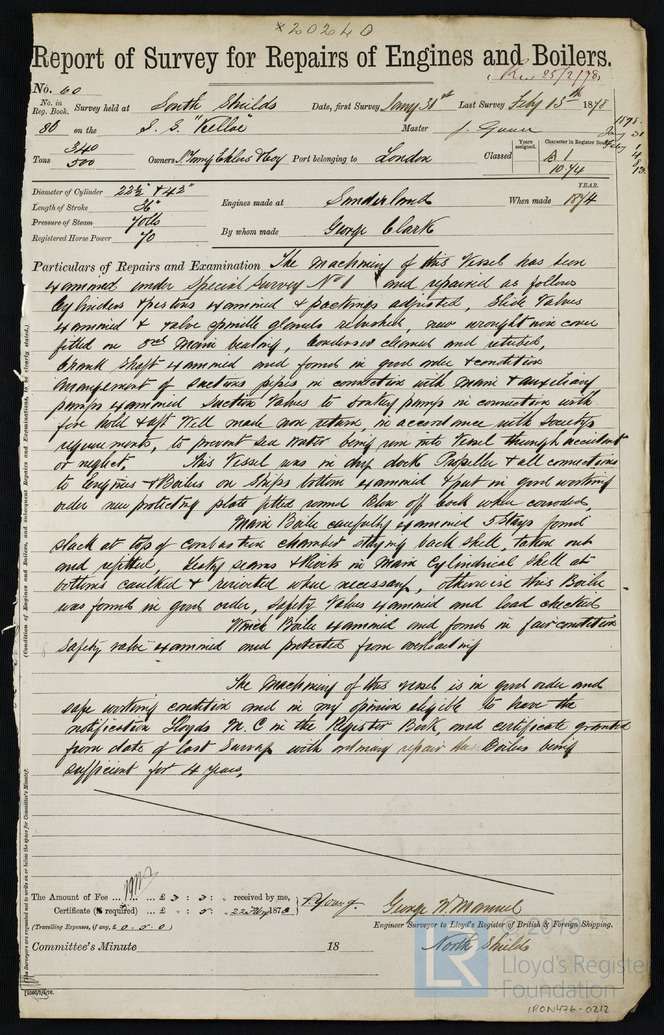 *20240
Report of Survey for Repairs of Engines and Boilers.
25/2/78
No. 60
No. in Reg. Book. Survey held at South Shields Date, first Survey Jany 31st Last Survey Feby 13th 1878
1878.
Jany 31
Feby 1
4
8
13
80 on the S. S. "Kelloe" Master J. Gunn
Tons 340 500 Owners Port belonging to London Classed Years assigned. Character in Register Book A 1 10.74
Diameter of Cylinder 22½ & 42"
Length of Stroke 26"
Pressure of Steam 70 lbs
Registered Horse Power 70
Engines made at Sunderland When made YEAR. 1874
By whom made George Clark
Particulars of Repairs and Examination The Machinery of this Vessel has been
examined under Special Survey No 1 and repaired as follows
Cylinders & pistons examined & packings adjusted, Slide Valves
examined & valve spindle glands rebushed, new wrought iron cover
fitted on Main bearing, Condenser cleaned and retubed,
Crank Shaft examined and found in good order & condition
Arrangement of Suctions pipes in connection with Main & auxiliary
pumps examined Suction Valves to donkey pump in connection with
fire hold & aft Well made non return, in accordance with Society's
requirements, to prevent sea water being run into Vessel through accident
or neglect. This Vessel was in dry dock Propeller & all connections
to Engines & Boilers on Ships bottom examined & put in good working
order new protecting plate fitted round Blow off Cock where corroded,
Main Boiler carefully examined 5 Stays found
slack at top of combustion chamber staying back shell, taken out
and refitted, leaky seams & Rivets in Main Cylindrical shell at
bottoms caulked & reriveted where necessary, otherwise this Boiler
was found in good order, Safety Valves examined and load checked
Winch Boiler examined and found in fair condition
Safety valve examined and protected from overloading
The Machinery of this vessel is in good order and
safe working condition and in my opinion eligible to have the
notification Lloyds M.C in the Register Book, and certificate granted
from date of last Survey with ordinary repair the Boilers being
sufficient for 4 years.
(Condition of Engines and Boilers, and subsequent Repairs and Examinations, to be clearly stated.)
The Surveyors are requested not to write on or below the space for Committee's Minute.
The Amount of Fee ... £ 3 : 3 : received by me,
Certificate (if required) ... £ : 5 : 22 Feby 1878
(Travelling Expenses, if any, £ 0.5.0)
T. Young.
George W. Manuel
Engineer Surveyor to Lloyd's Register of British & Foreign Shipping.
North Shields
Committee's Minute 18
© 2019
LR
Lloyd's Register
Foundation
IRON476-0212